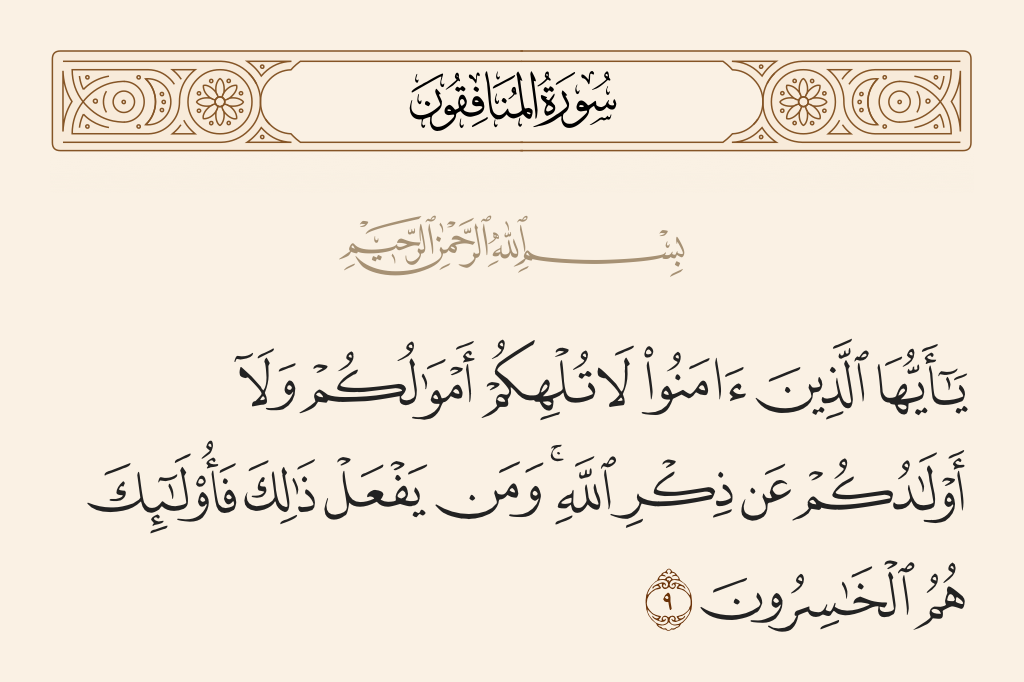 سُورَةُ المُنَافِقُونَ
بِسْمِ ٱللَّهِ ٱلرَّحْمَٰنِ ٱلرَّحِيمِ
يَٰٓأَيُّهَا ٱلَّذِينَ ءَامَنُوا۟ لَا تُلْهِكُمْ أَمْوَٰلُكُمْ وَلَآ
أَوْلَٰدُكُمْ عَن ذِكْرِ ٱللَّهِ ۚ وَمَن يَفْعَلْ ذَٰلِكَ فَأُو۟لَٰٓئِكَ
هُمُ ٱلْخَٰسِرُونَ ٩